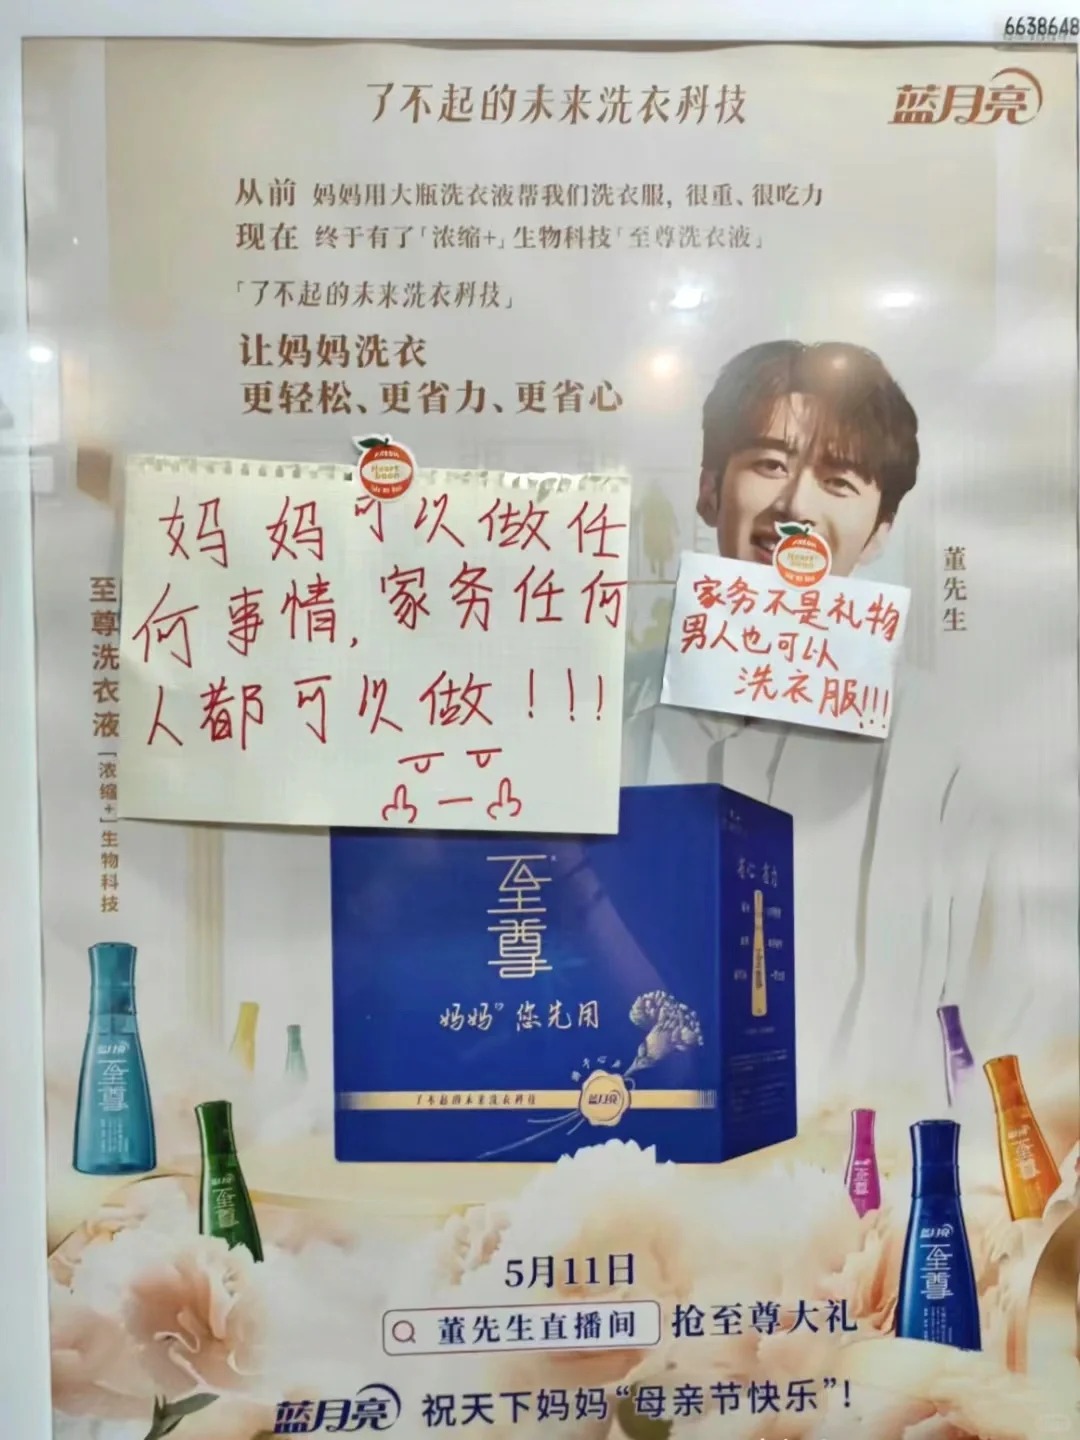 6638648
了不起的未来洗衣科技
蓝月亮
从前 妈妈用大瓶洗衣液帮我们洗衣服，很重、很吃力
现在 终于有了「浓缩+」生物科技「至尊洗衣液」
「了不起的未来洗衣科技」
让妈妈洗衣
更轻松、更省力、更省心
妈妈可以做任
何事情，家务任何
人都可以做！！！
家务不是礼物
男人也可以
洗衣服!!!
董先生
至尊洗衣液
「浓缩+」生物科技
至尊
妈妈 您先用
省心 省力
了不起的未来洗衣科技
蓝月亮
蓝月亮
至尊
至尊
至尊
至尊
蓝月亮
至尊
5月11日
董先生直播间 抢至尊大礼
蓝月亮 祝天下妈妈“母亲节快乐”！